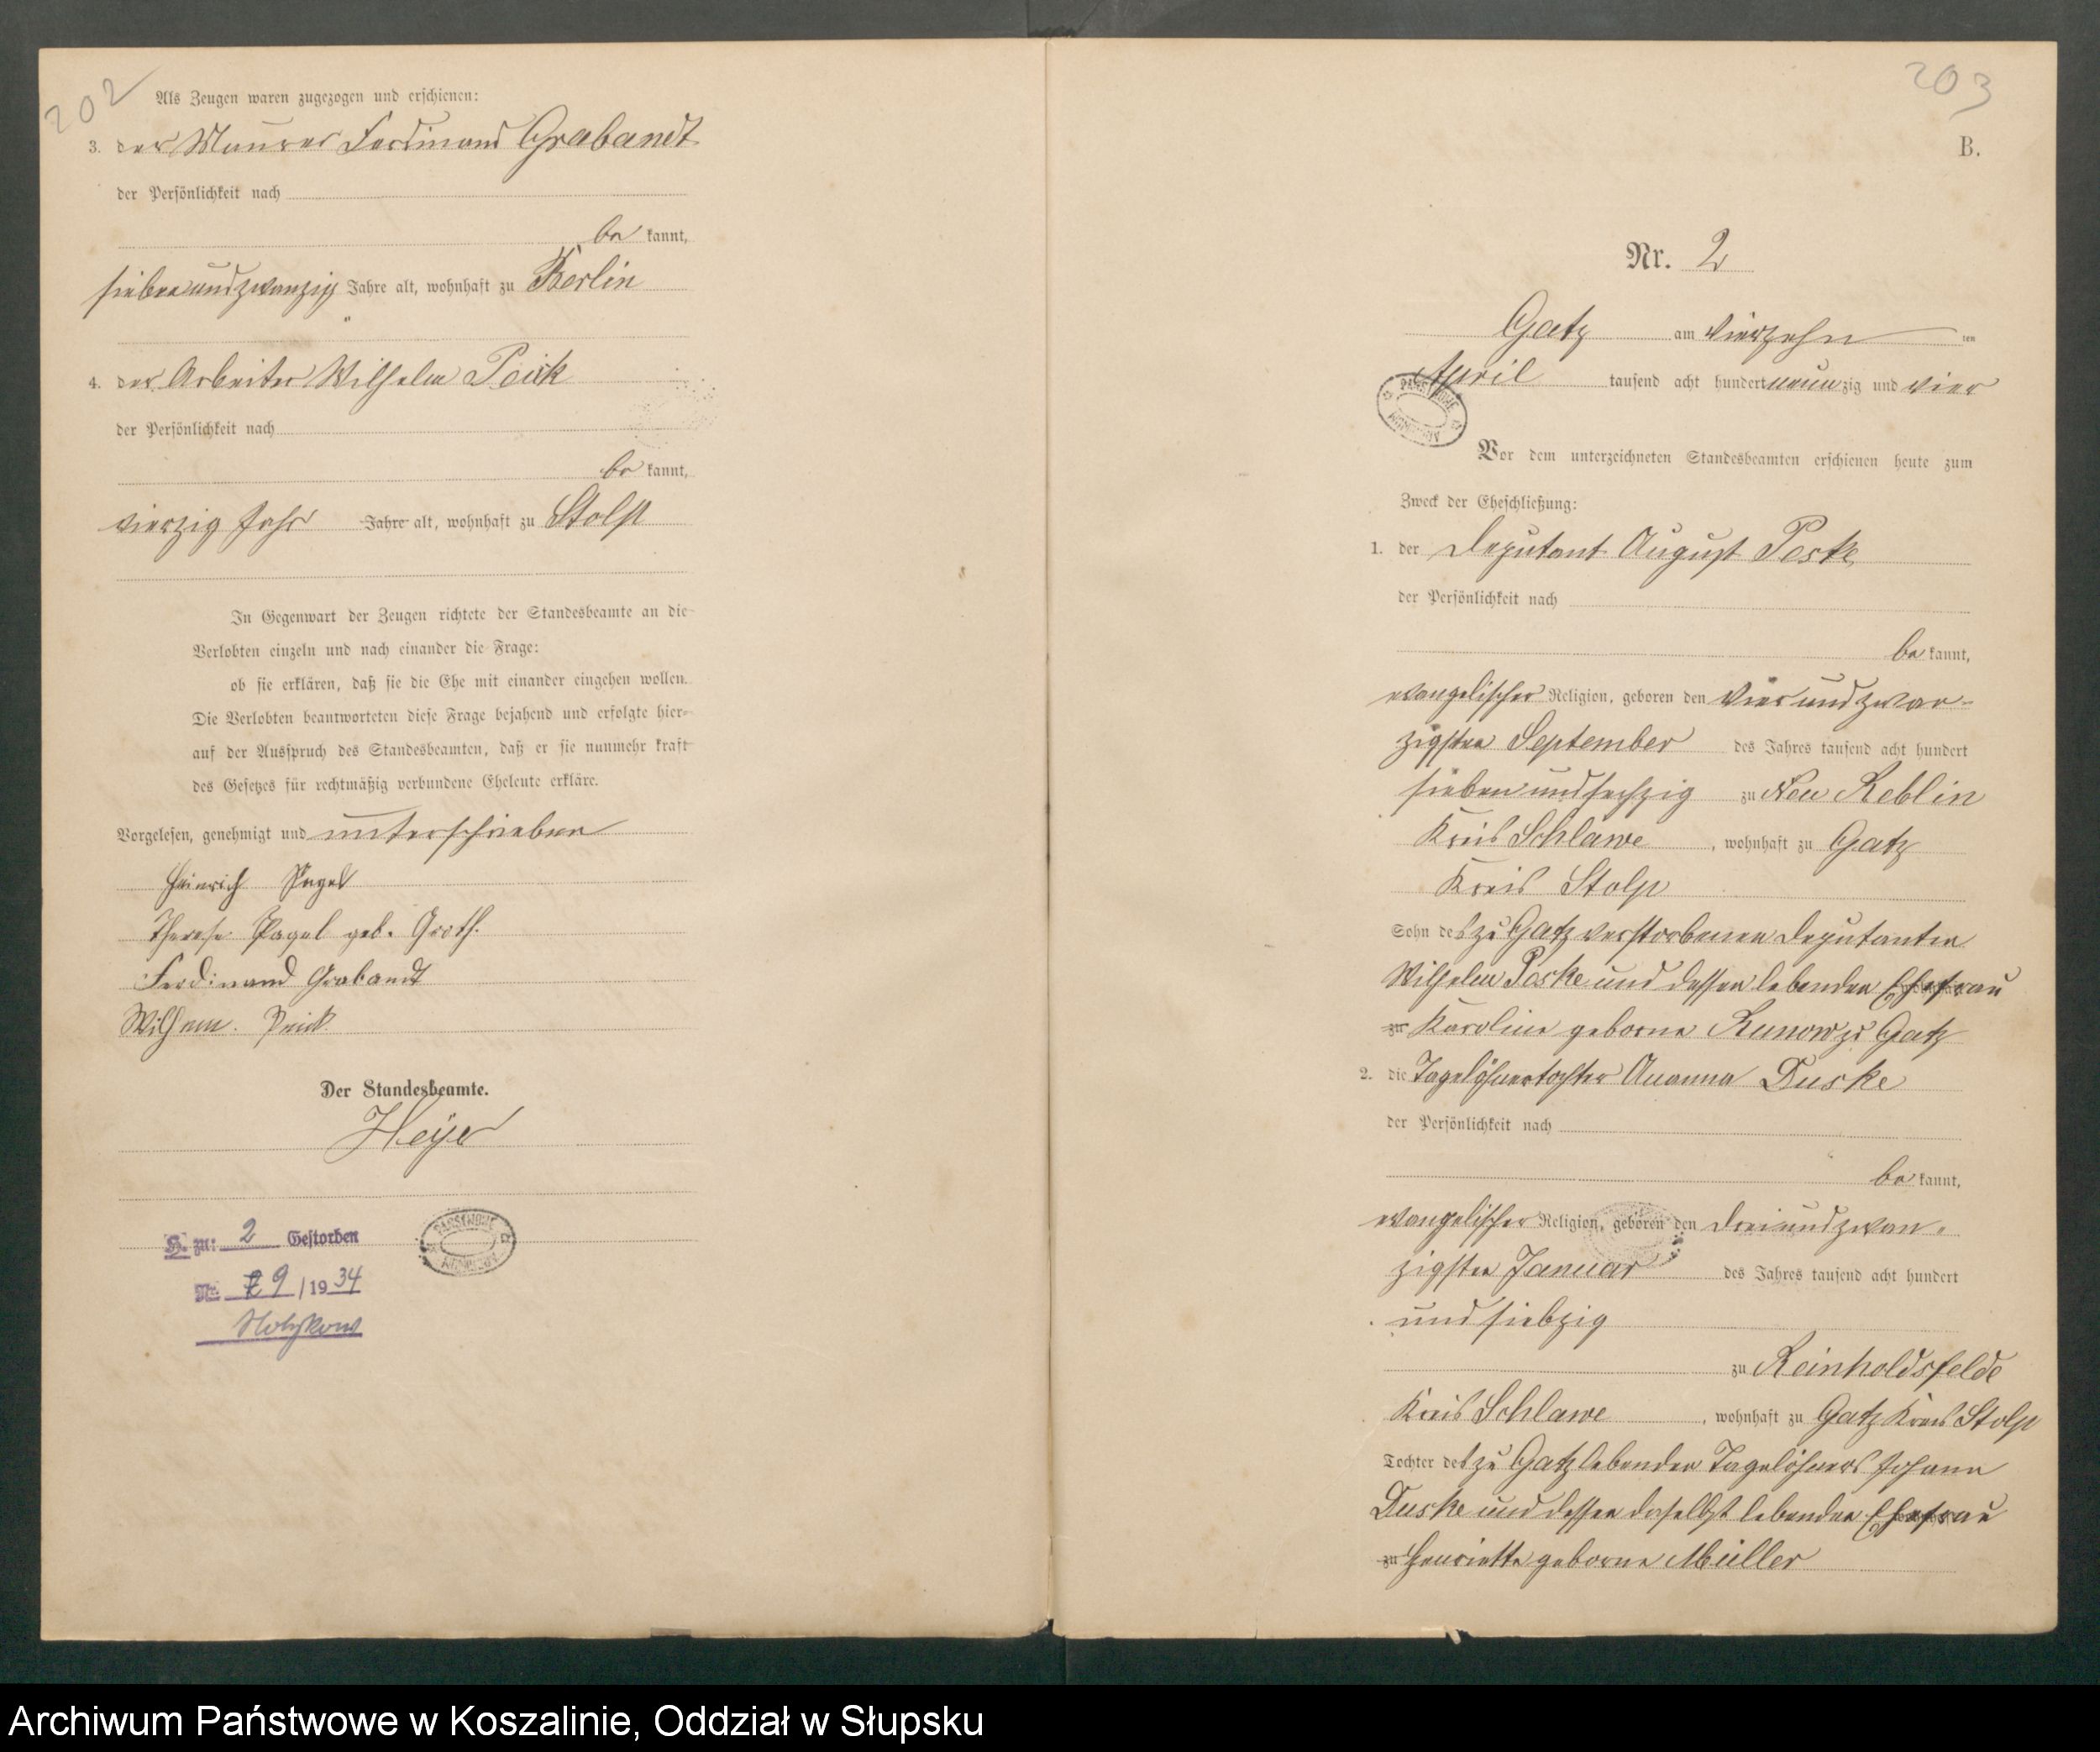 202
Als Zeugen waren zugezogen und erschienen:
3. der Maurer Ferdinand Grabandt
der Persönlichkeit nach
be kannt,
siebenundzwanzig Jahre alt, wohnhaft zu Berlin
4. der Arbeiter Wilhelm Peick
der Persönlichkeit nach
be kannt,
vierzig Jahr Jahre alt, wohnhaft zu Stolp
In Gegenwart der Zeugen richtete der Standesbeamte an die
Verlobten einzeln und nach einander die Frage:
ob sie erklären, daß sie die Ehe mit einander eingehen wollen.
Die Verlobten beantworteten diese Frage bejahend und erfolgte hier-
auf der Ausspruch des Standesbeamten, daß er sie nunmehr kraft
des Gesetzes für rechtmäßig verbundene Eheleute erkläre.
Vorgelesen, genehmigt und unterschrieben
Heinrich Pagel
Therese Pagel geb. Groth.
Ferdinand Grabandt
Wilhem. Peick
Der Standesbeamte.
Heyer
H. zu: 2 Gestorben
Nr. 9 / 19 34
203
B.
Nr. 2
Gatz am vierzehn ten
April tausend acht hundert neun zig und vier
Vor dem unterzeichneten Standesbeamten erschienen heute zum
Zweck der Eheschließung:
1. der Deputant August Peske
der Persönlichkeit nach
be kannt,
evangelischer Religion, geboren den vierundzwan-
zigsten September des Jahres tausend acht hundert
siebenundsechzig zu Neu Reblin
Kreis Schlawe, wohnhaft zu Gatz
Kreis Stolp
Sohn des zu Gatz verstorbenen Deputanten
Wilhelm Peske und dessen lebenden Ehefrau
zu Karoline geborne Runow zu Gatz
2. die Tagelöhnertochter Auanna Duske
der Persönlichkeit nach
be kannt,
evangelischer Religion, geboren den dreiundzwan-
zigsten Januar des Jahres tausend acht hundert
und siebzig
zu Reinholdsfelde
Kreis Schlawe, wohnhaft zu Gatz Kreis Stolp
Tochter des zu Gatz lebenden Tagelöhners Johann
Duske und dessen daselbst lebenden Ehefrau
zu Henriette geborne Müller
Archiwum Państwowe w Koszalinie, Oddział w Słupsku